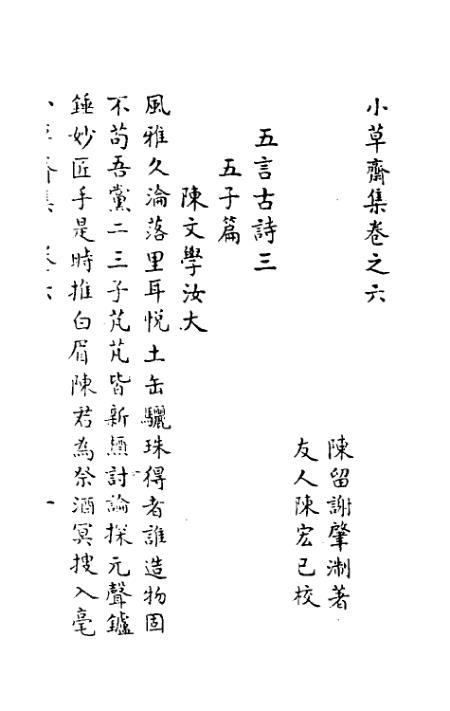 小草齋集卷之六
陳留謝肇淛著
友人陳宏已校
五言古詩三
五子篇
陳文學汝大
風雅久淪落里耳悅土缶驪珠得者誰造物固
不苟吾黨二三子芃芃皆新穎討論探元聲鑪
錘妙匠手是時推白眉陳君為祭酒冥搜入毫
小草齋集 卷六 一